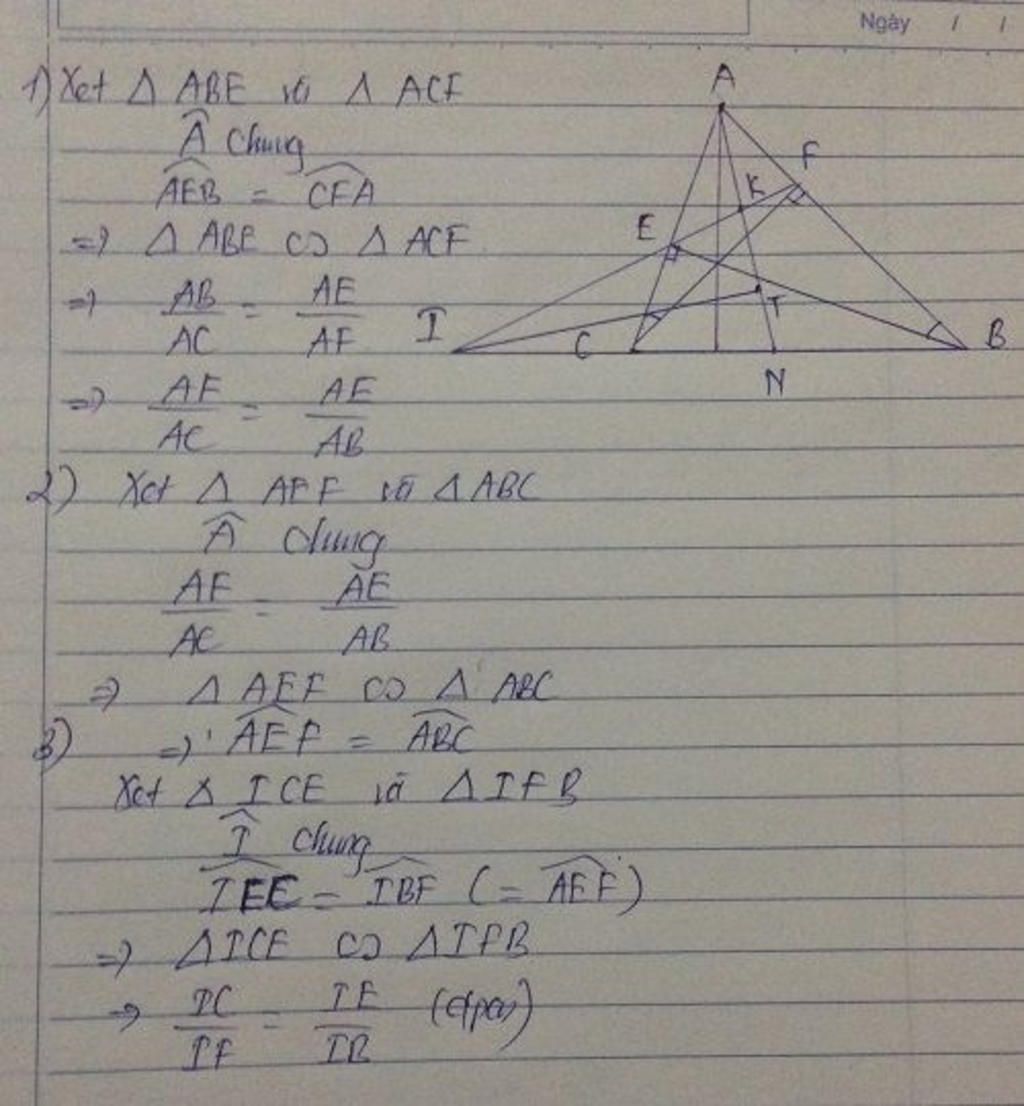 Ngày / /
1) Xét Δ ABE và Δ ACF
Â chung
\widehat{AEB} = \widehat{CFA}
=> Δ ABE ∽ Δ ACF
=> AB/AC = AE/AF
=> AF/AC = AE/AB
2) Xét Δ AEF và Δ ABC
Â chung
AF/AC = AE/AB
=> Δ AEF ∽ Δ ABC
3) => \widehat{AEF} = \widehat{ABC}
Xét Δ ICE và Δ IFB
\widehat{I} chung
\widehat{IEC} = \widehat{IBF} (= \widehat{AEF})
=> Δ ICE ∽ Δ IFB
=> IC/IF = IE/IB (đpcm)
A
F
K
E
I
C
T
B
N